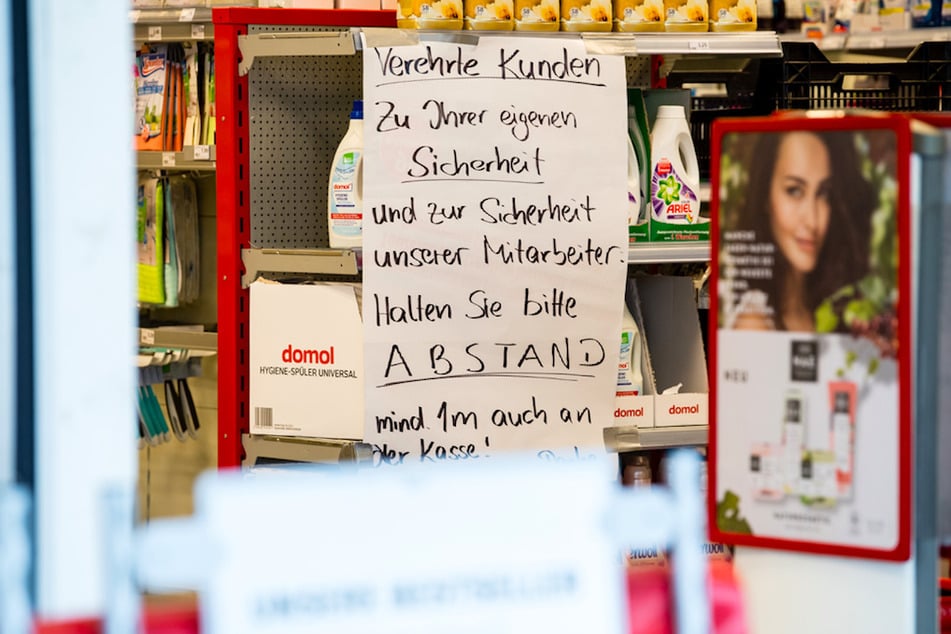 Verehrte Kunden
Zu Ihrer eigenen
Sicherheit
und zur Sicherheit
unserer Mitarbeiter.
Halten Sie bitte
ABSTAND
mind. 1m auch an
der Kasse!
domol
domol
HYGIENE-SPÜLER UNIVERSAL
ARIEL
domol
domol
NEU
UNSERE BESTSELLER